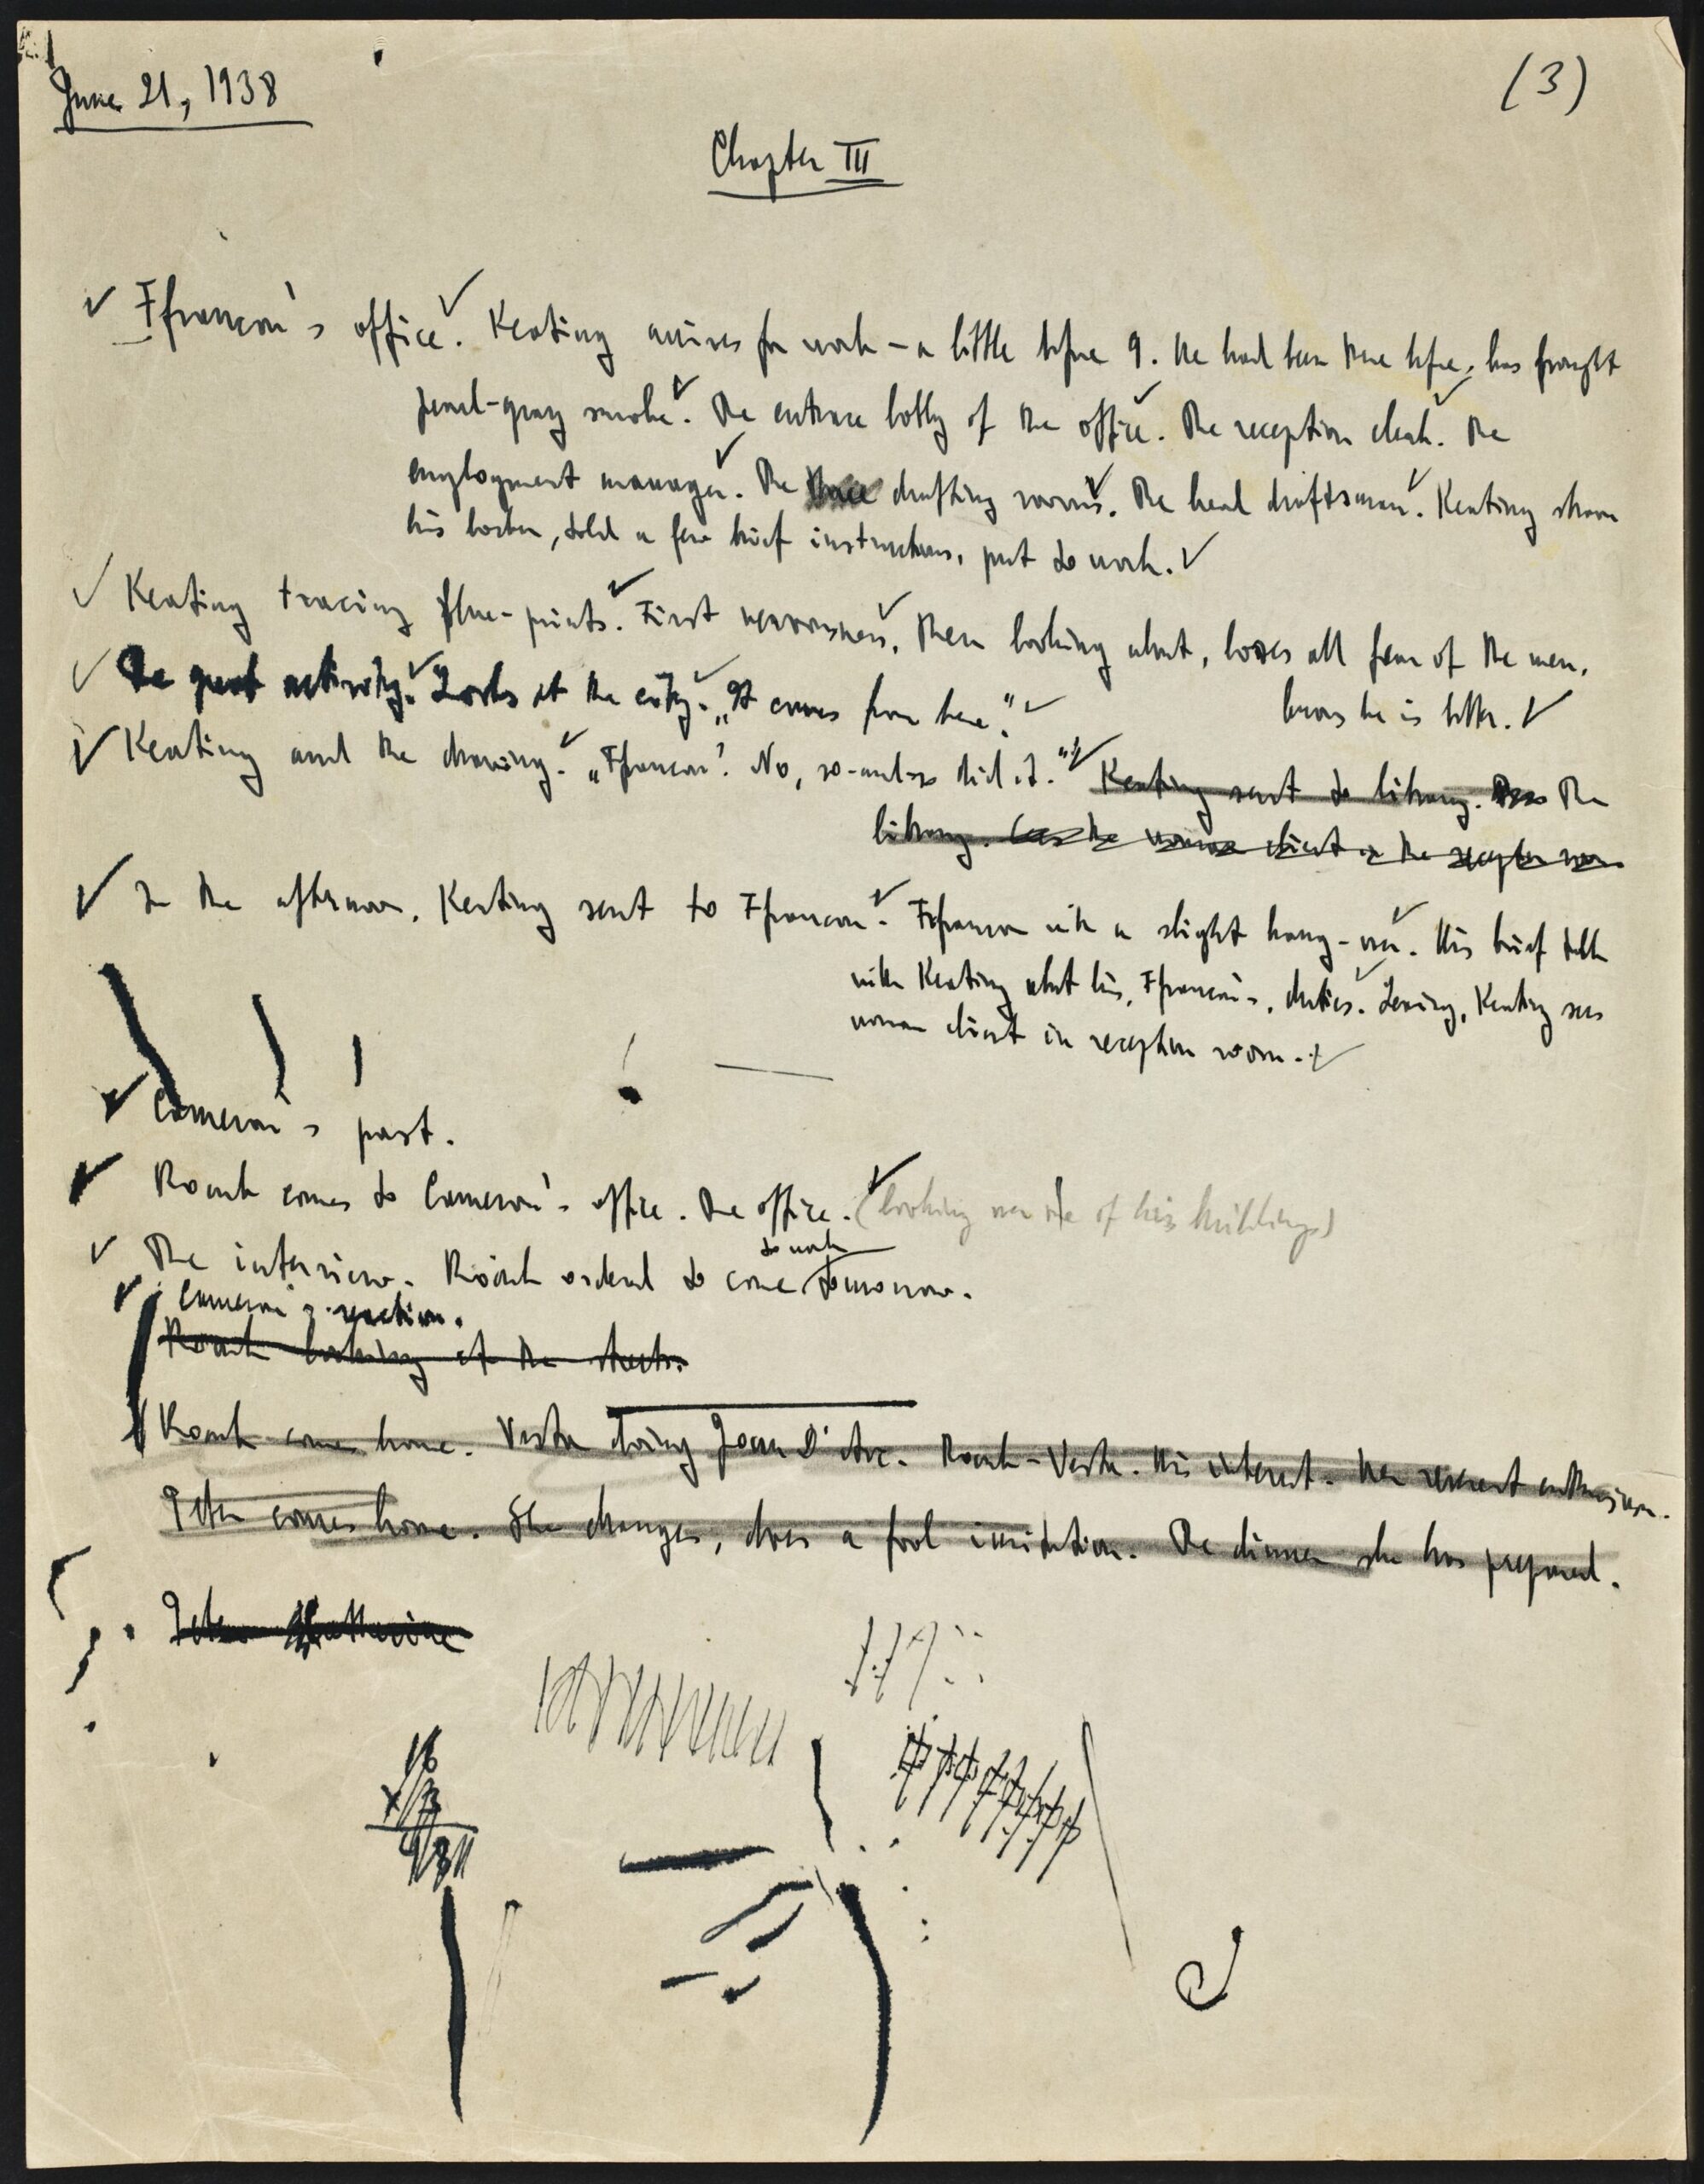 June 21, 1938
(3)
Chapter III
Ffrancon's office. Keating arrives for work – a little before 9. He had been there before, has fought
pearl-gray smoke. The entrance lobby of the office. The reception clerk. The
employment manager. The drafting rooms. The head draftsman. Keating shown
his locker, told a few brief instructions, put to work.
Keating tracing blue-prints. First nervousness, then looking about, loses all fear of the men,
knows he is better.
The great activity. Looks at the city. „It comes from here."
Keating and the drawing. „Ffrancon? No, so-and-so did it." Keating sent to library. The
library. Sees the woman client in the reception room.
In the afternoon, Keating sent to Ffrancon. Ffrancon with a slight hang-over. His brief talk
with Keating about his, Ffrancon's, duties. Leaving, Keating sees
woman client in reception room.
Cameron's past.
Roark comes to Cameron's office. The office. (looking over one of his buildings)
to work
The interview. Roark ordered to come tomorrow.
Cameron's reaction.
Roark looking at the streets.
Roark comes home. Vesta doing Joan D'Arc. Roark–Vesta. His interest. Her reverent enthusiasm.
Peter comes home. She changes, does a fool imitation. The dinner she has prepared.
Peter Catherine
16
x 3
48